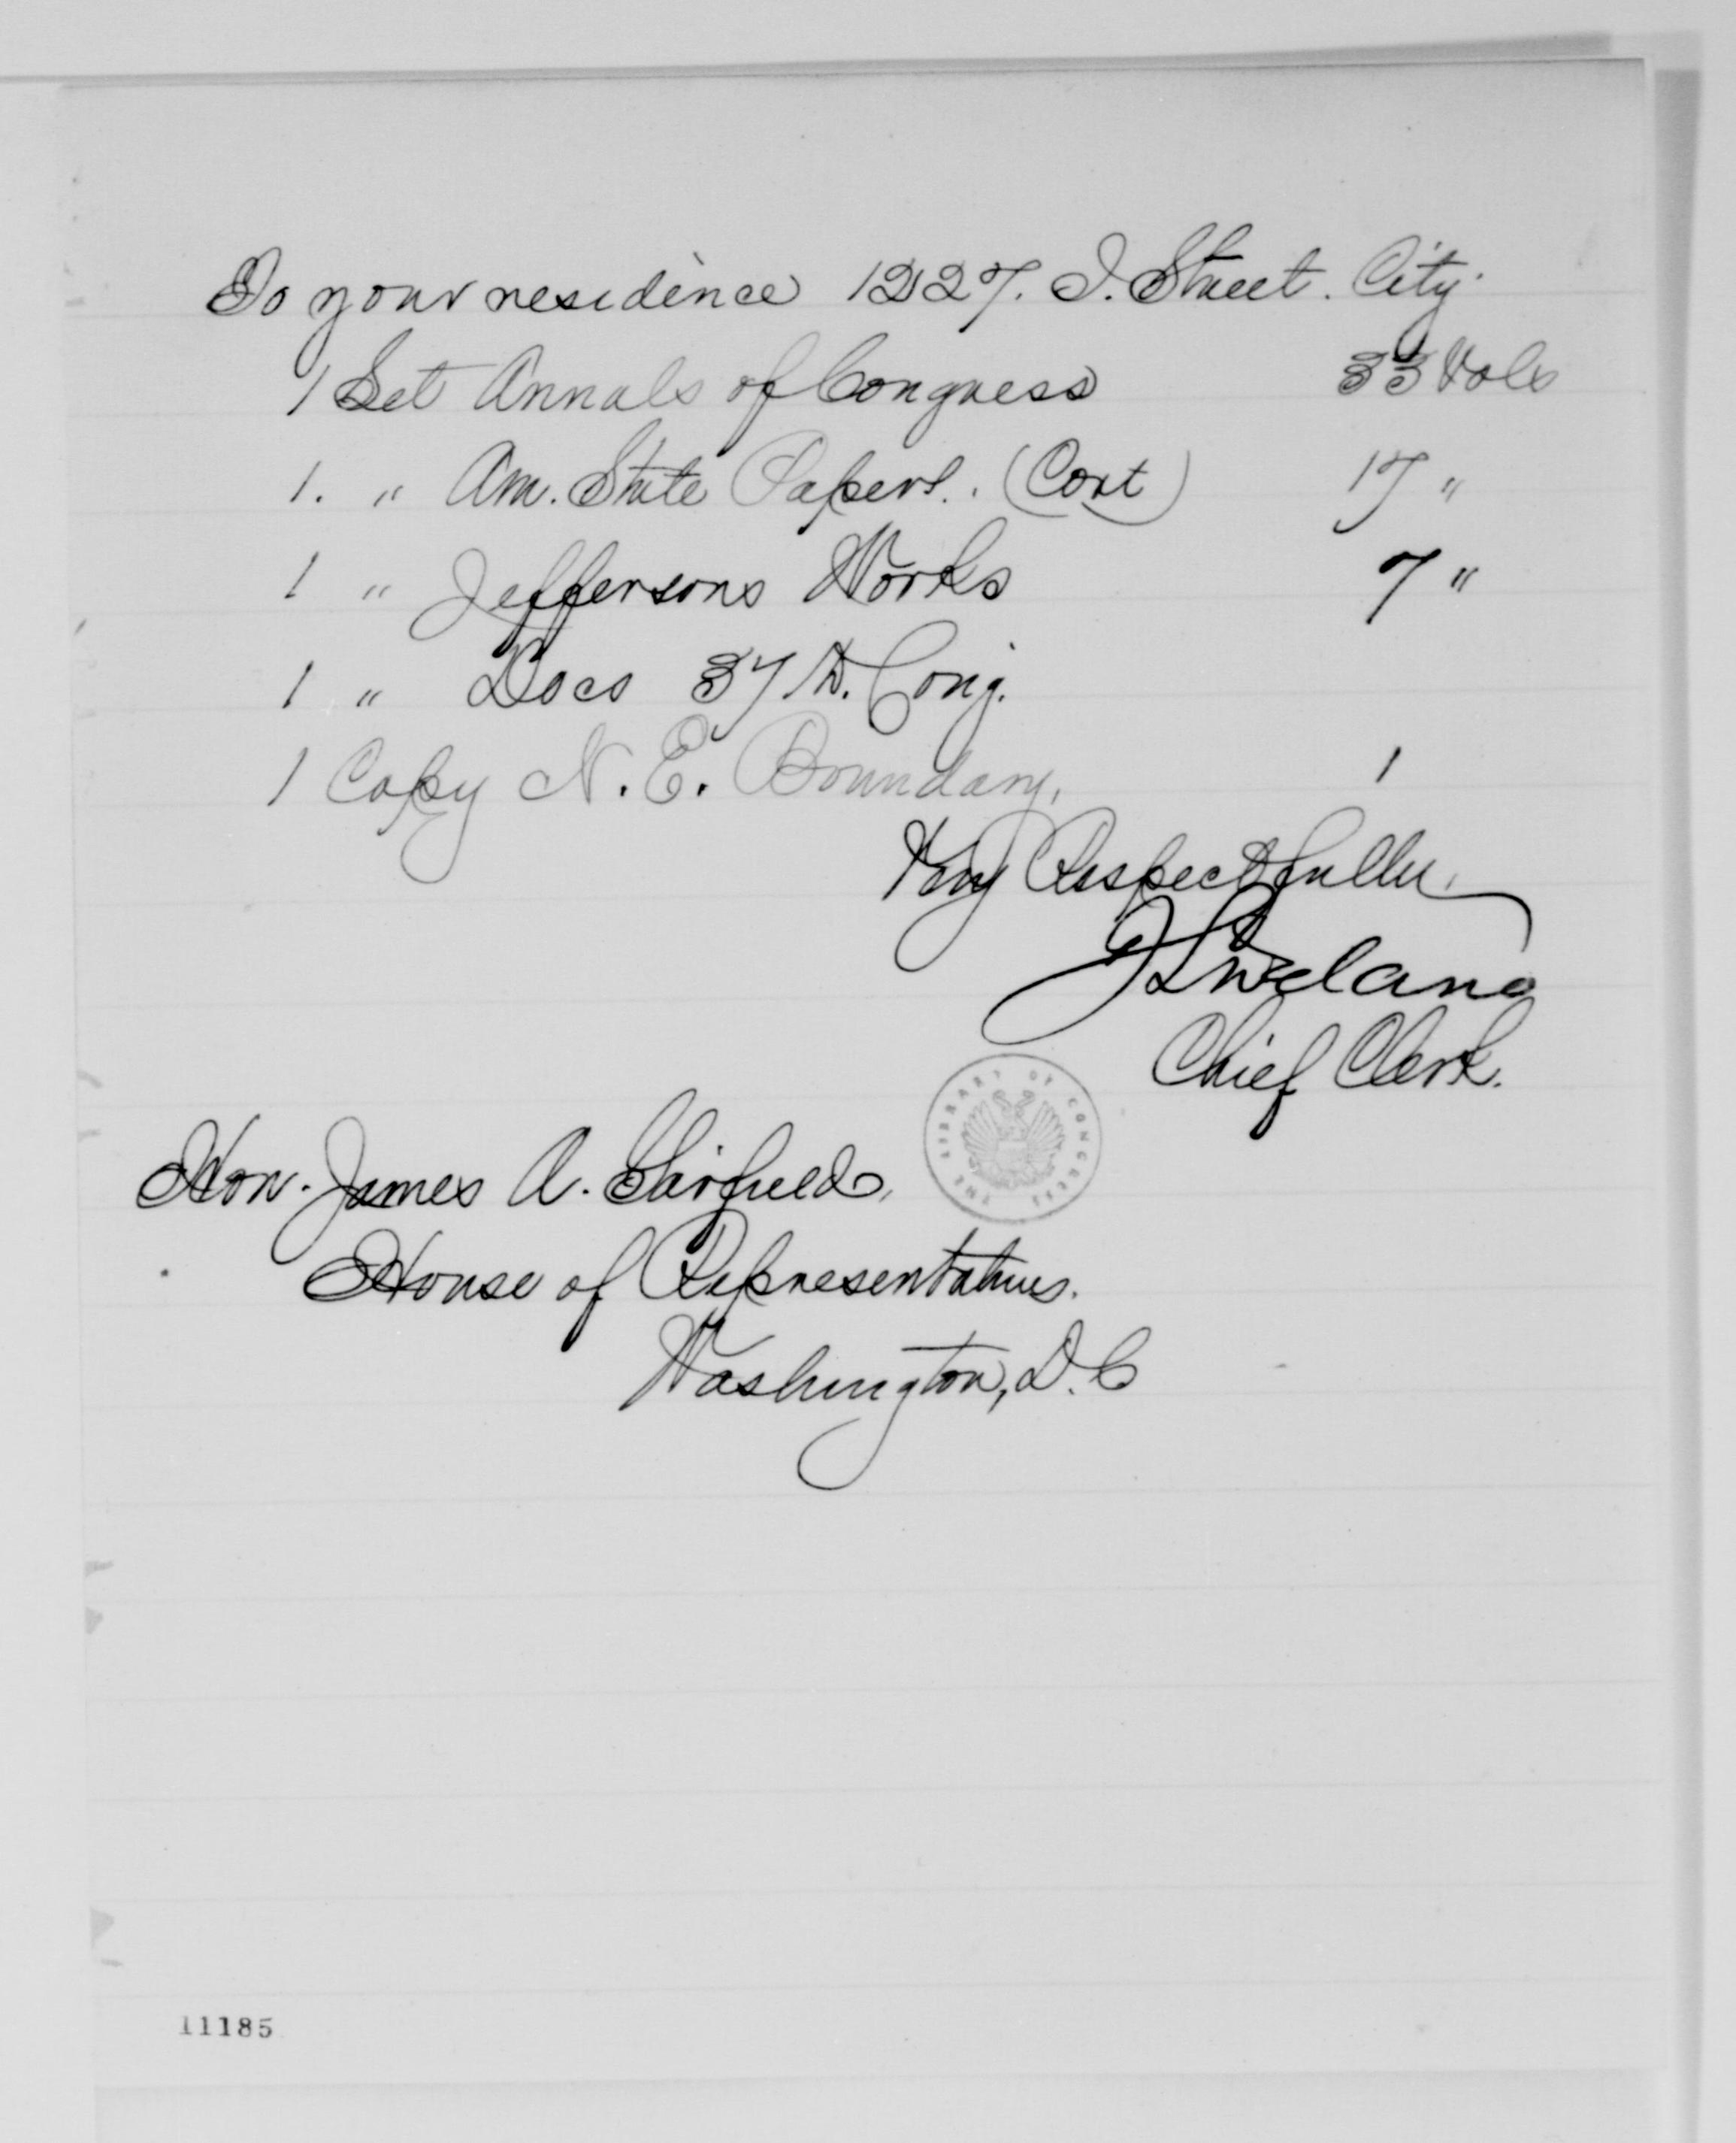 To your residence 1227. I. Street. City.
1 Set Annals of Congress 33 Vols
1. " Am. State Papers. (Cont) 17 "
1 " Jeffersons Works 7 "
1 " Docs 37th. Cong.
1 Copy N. E. Boundary, 1
Very Respectfully,
Chief Clerk.
THE LIBRARY OF CONGRESS
Hon. James A. Garfield,
House of Representatives.
Washington, D.C
11185